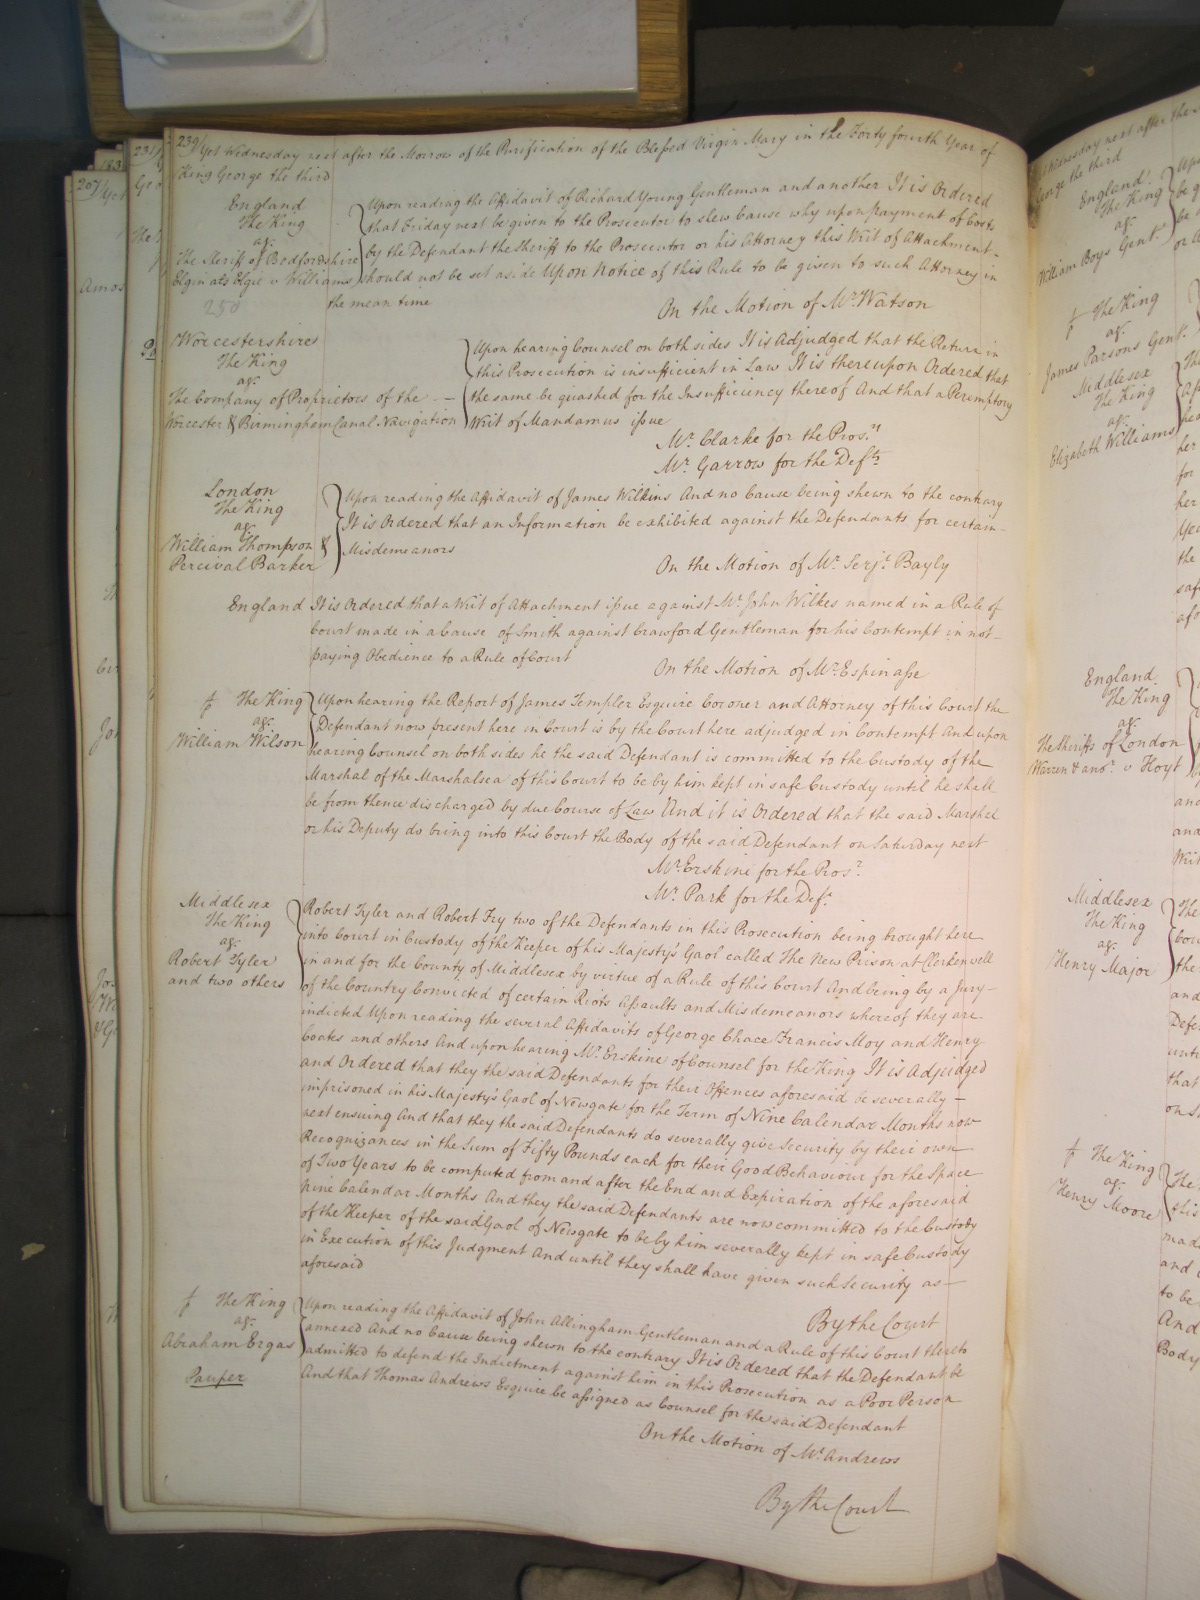 239/ Yet Wednesday next after the Morrow of the Purification of the Blessed Virgin Mary in the Forty fourth Year of
King George the third
England
The King
agt.
The Sheriff of Bedfordshire
Elgin ats Elgie v Williams
250
Upon reading the Affidavit of Richard Young Gentleman and another It is Ordered
that Friday next be given to the Prosecutor to shew Cause why upon payment of Costs
by the Defendant the Sheriff to the Prosecutor or his Attorney this Writ of Attachment
should not be set aside Upon Notice of this Rule to be given to such Attorney in
the mean time
On the Motion of Mr. Watson
Worcestershire
The King
agt.
The Company of Proprietors of the
Worcester & Birmingham Canal Navigation
Upon hearing Counsel on both sides It is Adjudged that the Return in
this Prosecution is insufficient in Law It is thereupon Ordered that
the same be quashed for the Insufficiency thereof And that a Peremptory
Writ of Mandamus issue
Mr. Clarke for the Pros.rs
Mr. Garrow for the Defts.
London
The King
agt.
William Thompson &
Percival Barker
Upon reading the Affidavit of James Wilkins And no Cause being shewn to the contrary
It is Ordered that an Information be exhibited against the Defendants for certain
Misdemeanors
On the Motion of Mr. Serjt. Bayly
England It is Ordered that a Writ of Attachment issue against Mr. John Wilkes named in a Rule of
Court made in a Cause of Smith against Crawford Gentleman for his Contempt in not
paying Obedience to a Rule of Court
On the Motion of Mr. Espinasse
The King
agt.
William Wilson
Upon hearing the Report of James Templer Esquire Coroner and Attorney of this Court the
Defendant now present here in Court is by the Court here adjudged in Contempt And upon
hearing Counsel on both sides he the said Defendant is committed to the Custody of the
Marshal of the Marshalsea of this Court to be by him kept in safe Custody until he shall
be from thence discharged by due Course of Law And it is Ordered that the said Marshal
or his Deputy do bring into this Court the Body of the said Defendant on Saturday next
Mr. Erskine for the Pros.r
Mr. Park for the Deft.
Middlesex
The King
agt.
Robert Tyler
and two others
Robert Tyler and Robert Fry two of the Defendants in this Prosecution being brought here
into Court in Custody of the Keeper of his Majesty's Gaol called The New Prison at Clerkenwell
in and for the County of Middlesex by virtue of a Rule of this Court And being by a Jury
of the Country Convicted of certain Riots Assaults and Misdemeanors whereof they are
indicted Upon reading the several Affidavits of George Chace Francis Moy and Henry
Coates and others And upon hearing Mr. Erskine of Counsel for the King It is Adjudged
and Ordered that they the said Defendants for their Offences aforesaid be severally
imprisoned in his Majesty's Gaol of Newgate for the Term of Nine Calendar Months now
next ensuing And that they the said Defendants do severally give Security by their own
Recognizances in the Sum of Fifty Pounds each for their Good Behaviour for the Space
of Two Years to be computed from and after the End and Expiration of the aforesaid
Nine Calendar Months And they the said Defendants are now committed to the Custody
of the Keeper of the said Gaol of Newgate to be by him severally kept in safe Custody
in Execution of this Judgment And until they shall have given such Security as
aforesaid
By the Court
The King
agt.
Abraham Ergas
Pauper
Upon reading the Affidavit of John Allingham Gentleman and a Rule of this Court thereto
annexed And no Cause being shewn to the contrary It is Ordered that the Defendant be
admitted to defend the Indictment against him in this Prosecution as a Poor Person
And that Thomas Andrews Esquire be assigned as Counsel for the said Defendant
On the Motion of Mr. Andrews
By the Court
Wednesday next after the
George the third
England
The King
agt.
William Boys Gent.
The King
agt.
James Parsons Gent.
Middlesex
The King
agt.
Elizabeth Williams
England
The King
agt.
The Sheriffs of London
Warren & anor. v Hoyt
Middlesex
The King
agt.
Henry Major
The King
agt.
Henry Moore